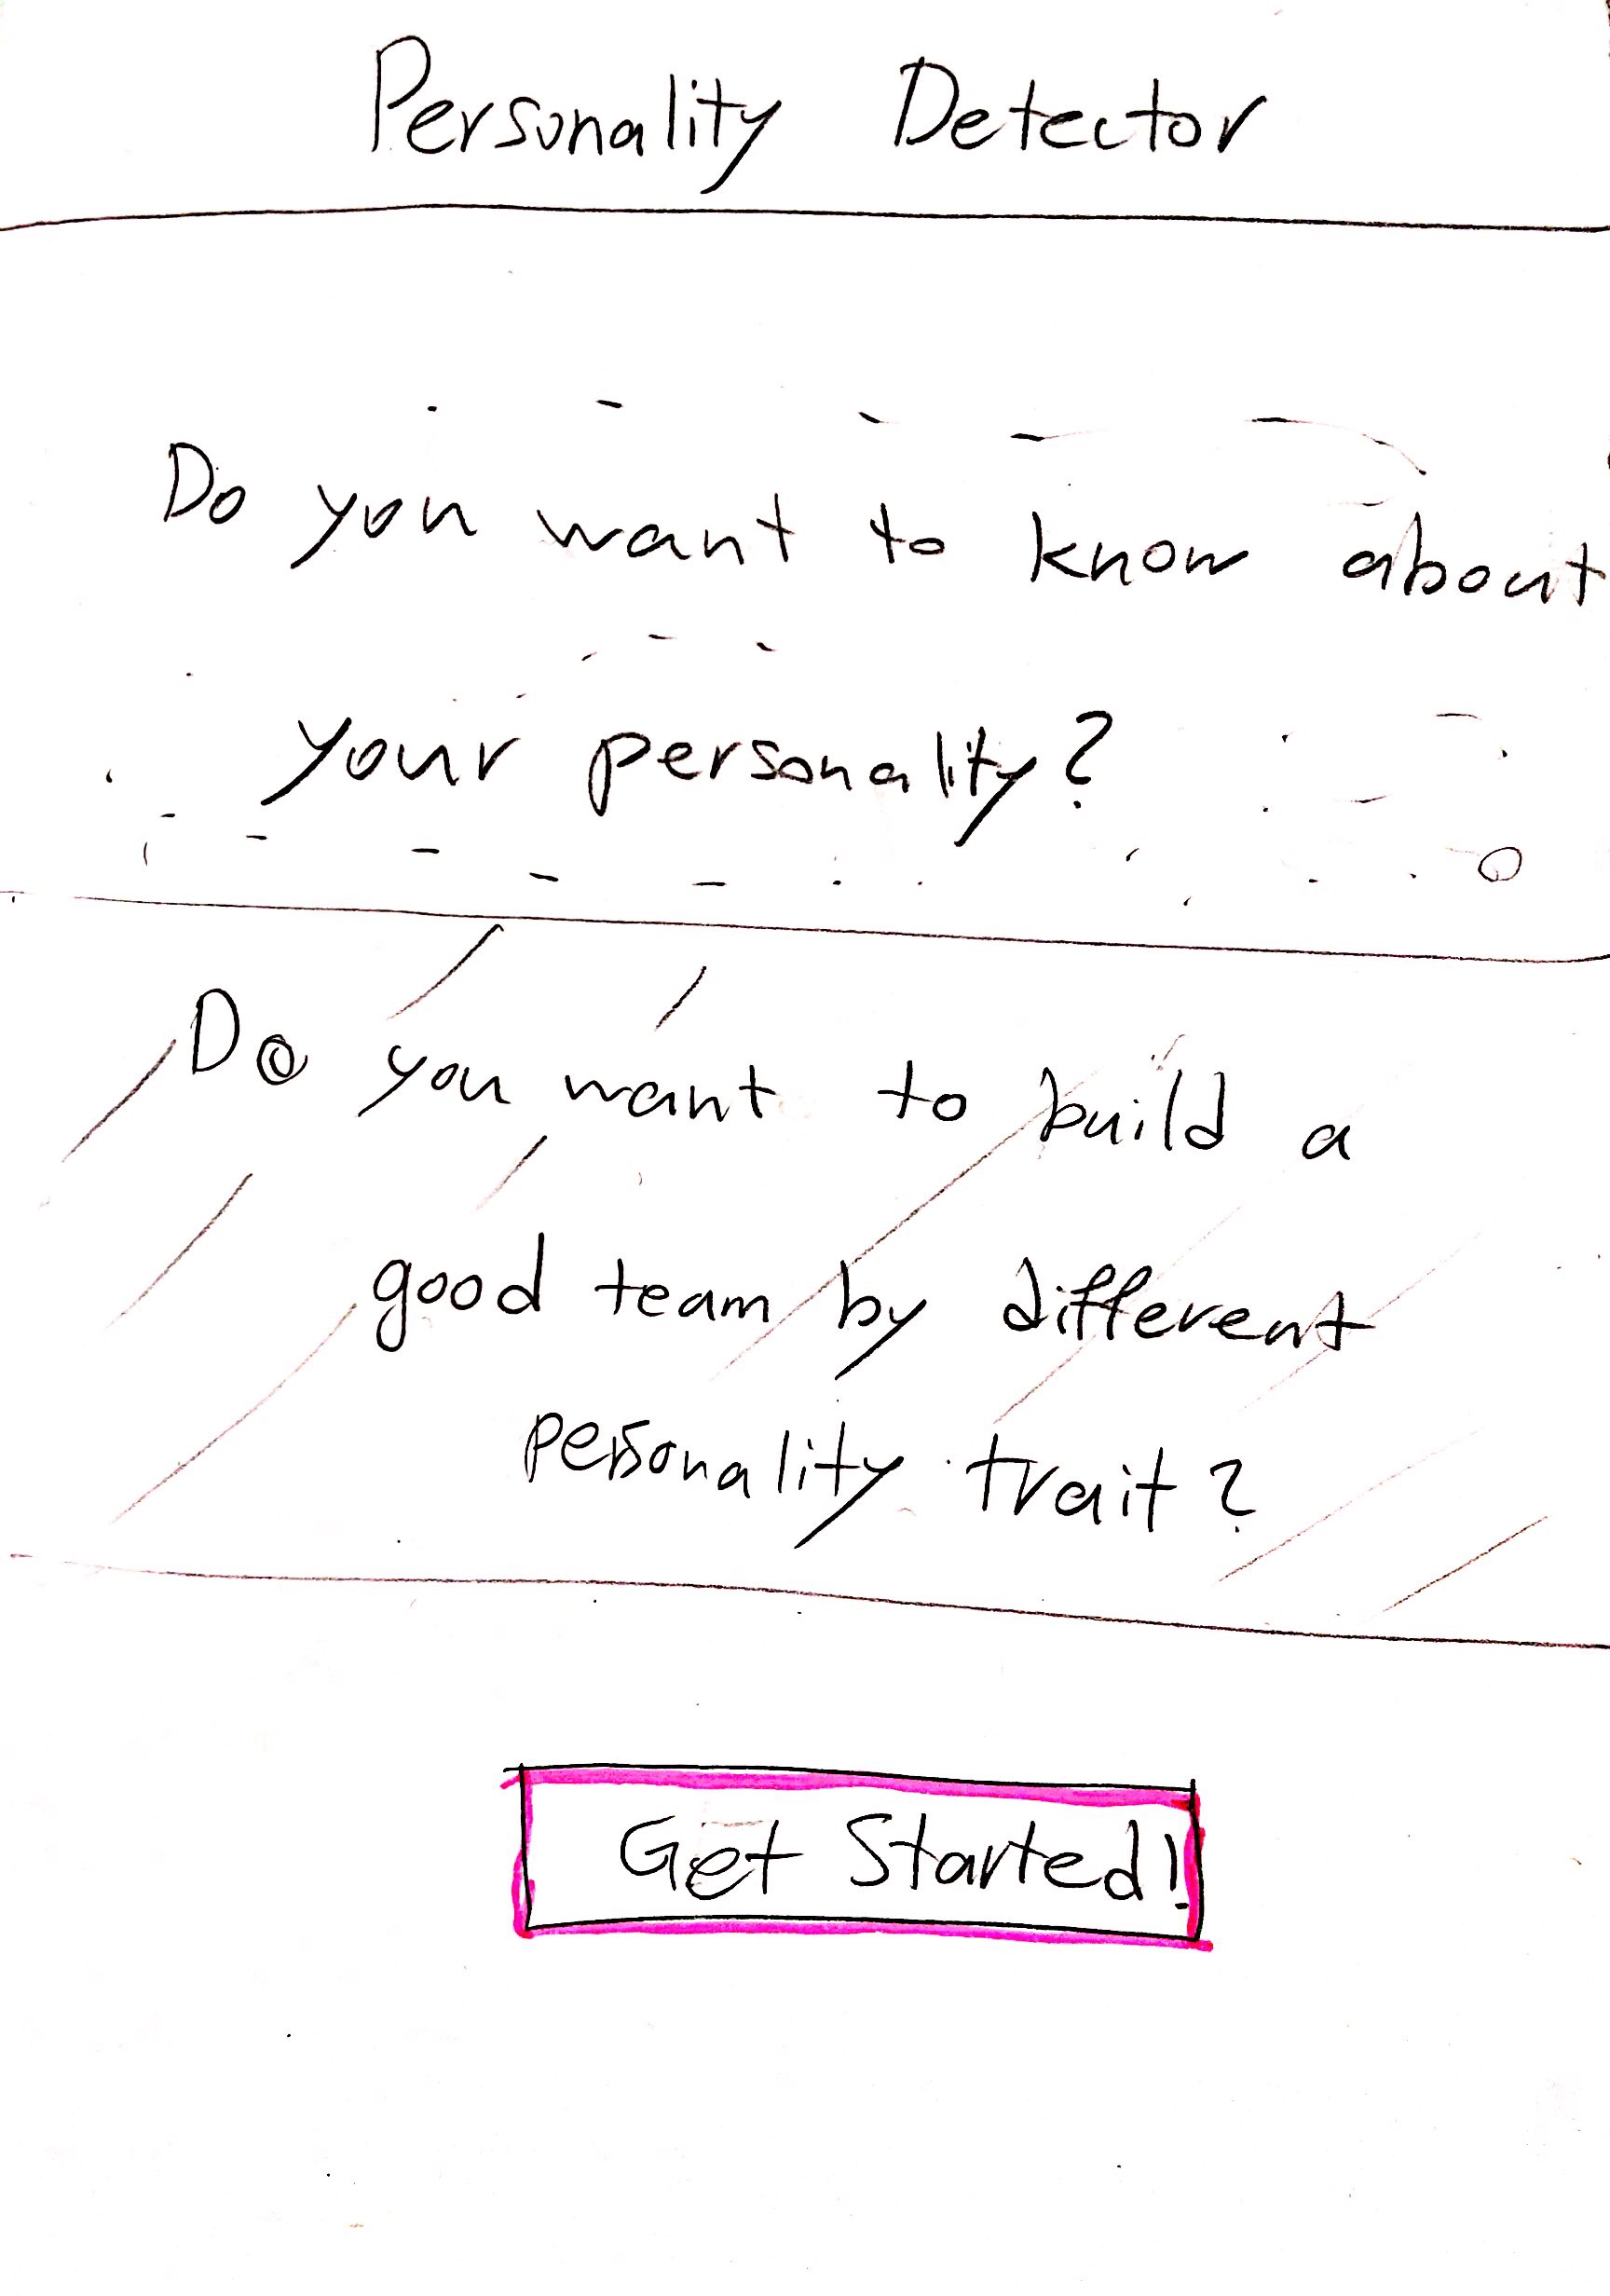 Personality Detector
Do you want to know about
your personality?
Do you want to build a
good team by different
personality trait?
Get Started!